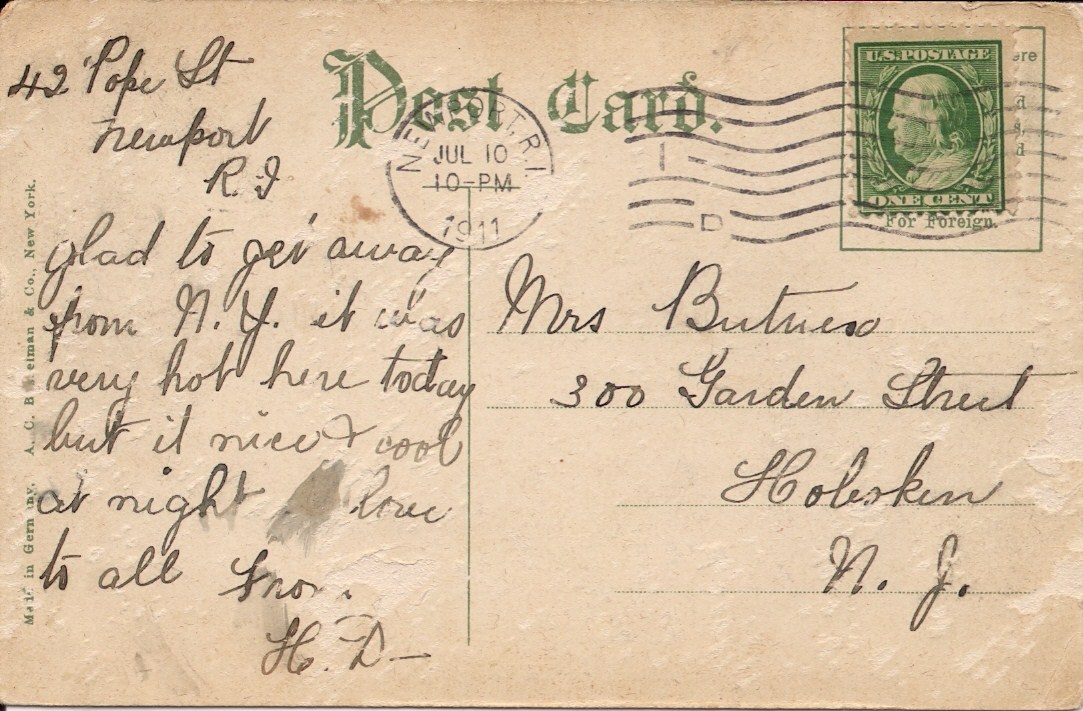 42 Pope St
Newport
R.I
glad to get away
from N.Y. it was
very hot here today
but it nice & cool
at night love
to all from
H. D—
Post Card.
NEWPORT, R.I.
JUL 10
10-PM
1911
D
U.S. POSTAGE
ONE CENT
For Foreign.
Mrs
300 Garden Street
Hoboken
N. J.
Made in Germany. A. C. & Co., New York.